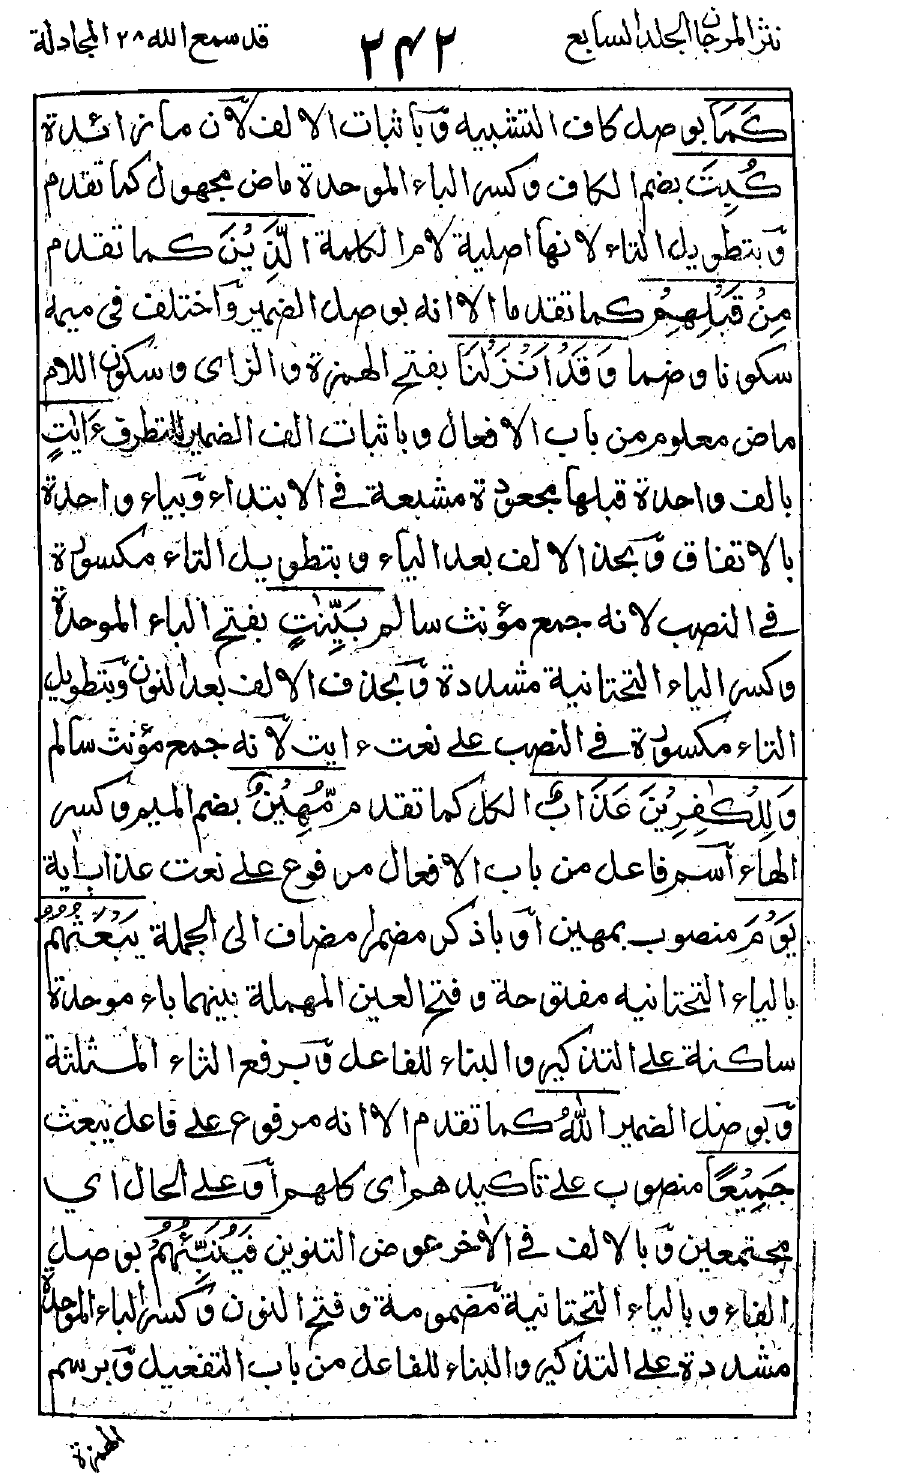 نثر المرجان الجلد السابع ٢٤٢ قد سمع الله ٢٨ المجادلة
كَمَا بوصل كاف التشبيه وبا ثبات الالف لان ما زائدة
كُبِتَ بضم الكاف وكسر الباء الموحدة ماض مجهول كما تقدم
وبتطويل التاء لانها اصلية لام الكلمة الَّذِيْنَ كما تقدم
مِنْ قَبْلِهِمْ كما تقدم الا انه بوصل الضمير واختلف فى ميمه
سكونا وضما وَقَدْ اَنْزَلْنَا بفتح الهمزة والزاى وسكون اللام
ماض معلوم من باب الافعال وباثبات الف الضمير للتطرف ءَايٰتٍ
بالف واحدة قبلها مجعودة مشبعة فى الابتداء وبياء واحدة
بالاتفاق وبحذ الالف بعد الياء وبتطويل التاء مكسورة
فى النصب لانه جمع مؤنث سالم بَيِّنٰتٍ بفتح الباء الموحدة
وكسر الياء التحتانية مشددة وبحذف الالف بعد النون وبتطويل
التاء مكسورة فى النصب على نعت ءايت لانه جمع مؤنث سالم
وَلِلْكٰفِرِيْنَ عَذَابٌ الكل كما تقدم مُّهِيْنٌ بضم الميم وكسر
الهاء اسم فاعل من باب الافعال مرفوع على نعت عذاب اية
يَوْمَ منصوب بمهين او باذكر مضمرا مضاف الى الجملة يَبْعَثُهُمُ
بالياء التحتانيه مفتوحة وفتح العين المهملة بينهما باء موحدة
ساكنة على التذكير والبناء للفاعل وبرفع الثاء المثلثة
وبوصل الضمير اللهُ كما تقدم الا انه مرفوع على فاعل يبعث
جَمِيْعًا منصوب على تاكيد هم اى كلهم او على الحال اي
مجتمعين وبالالف فى الاخر عوض التنوين فَيُنَبِّئُهُمْ بوصل
الفاء وبالياء التحتانية مضمومة وفتح النون وكسر الباء الموحدة
مشددة على التذكير والبناء للفاعل من باب التفعيل وبرسم
الهمزة